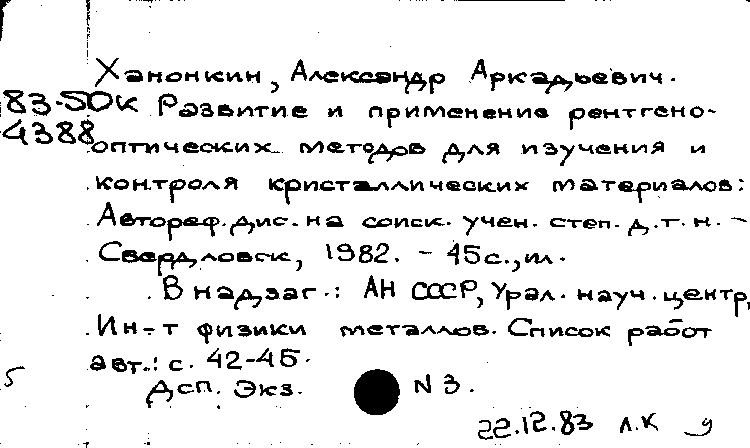 Ханонкин, Александр Аркадьевич.
83-50к Развитие и применение рентгено-
4388 оптических методов для изучения и
контроля кристаллических материалов:
Автореф. дис. на соиск. учен. степ. д.т.н. –
Свердловск, 1982. – 45с., ил.
В надзаг.: АН СССР, Урал. науч. центр,
Ин-т физики металлов. Список работ
авт.: с. 42-45.
Дсп. Экз. N 3.
22.12.83 Л.К